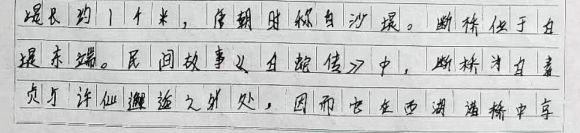 堤长约1千米，唐朝时称白沙堤。断桥位于白
堤东端。民间故事《白蛇传》中，断桥为白素
贞与许仙邂逅之别处，因而它在西湖诸桥中享